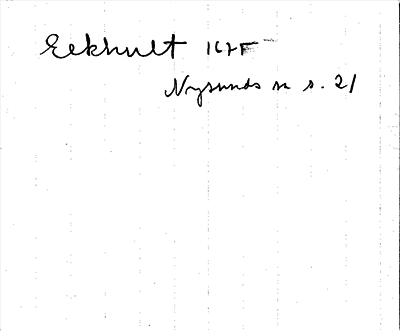 Eekhult
Nysunds sn s. 21